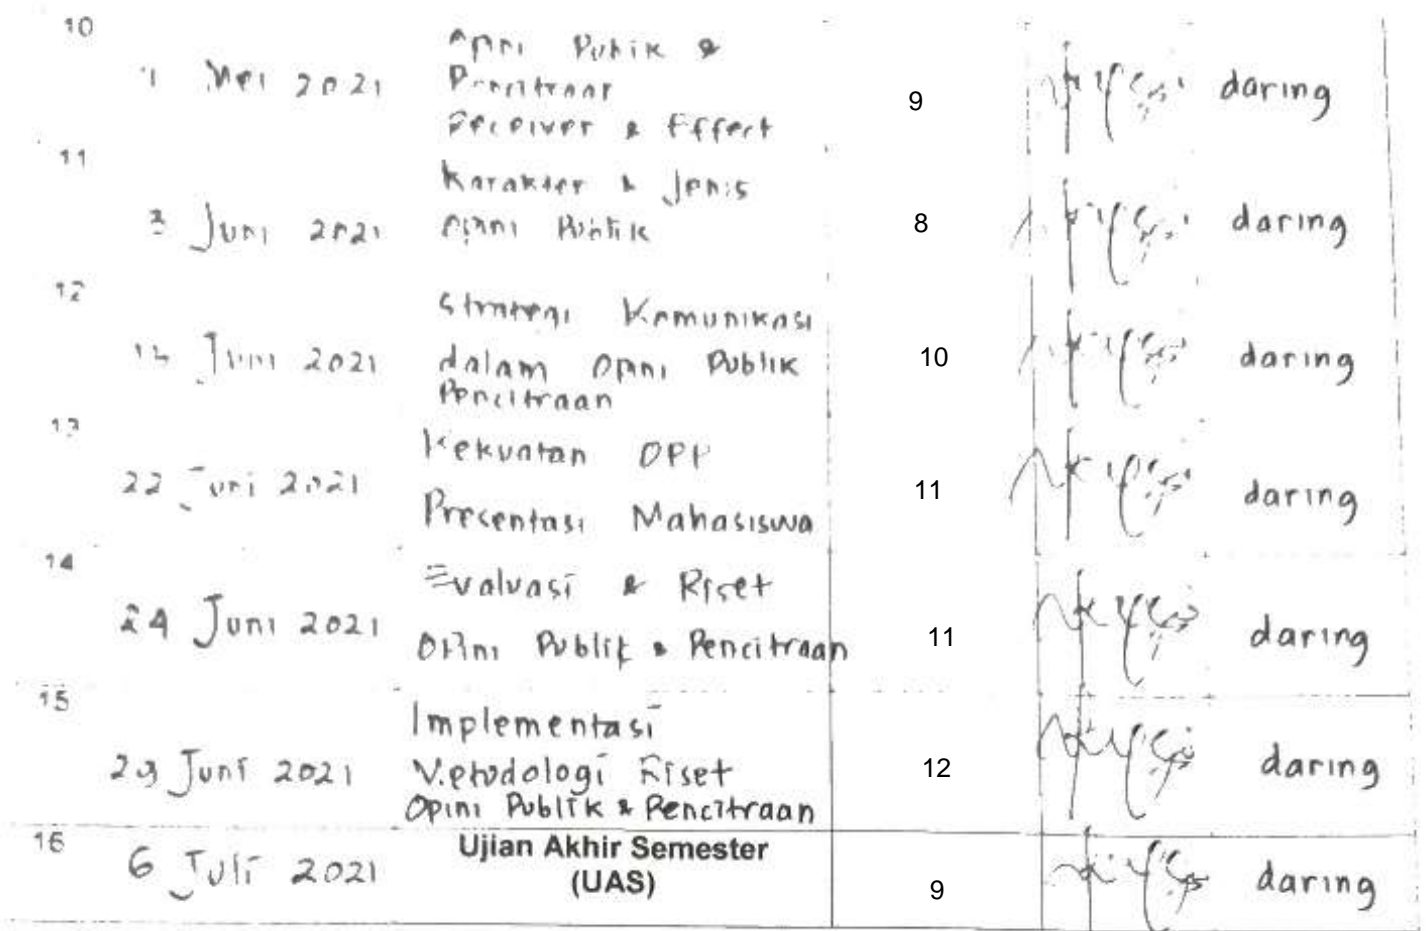 10
Mei 2021
Opini Publik &
Pencitraan
Receiver & Effect
9
daring
11
3 Juni 2021
Karakter & Jenis
Opini Publik
8
daring
12
Juni 2021
Strategi Komunikasi
dalam Opini Publik
Pencitraan
10
daring
13
22 Juni 2021
Kekuatan OPP
Presentasi Mahasiswa
11
daring
14
24 Juni 2021
Evaluasi & Riset
Opini Publik & Pencitraan
11
daring
15
29 Juni 2021
Implementasi
Metodologi Riset
Opini Publik & Pencitraan
12
daring
16
6 Juli 2021
Ujian Akhir Semester
(UAS)
9
daring